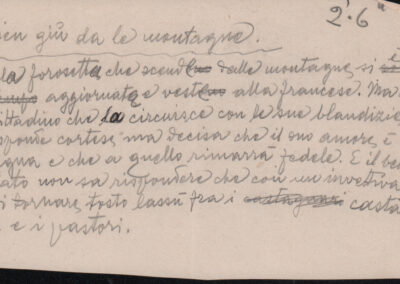 2'.6"
vien giù da le montagne.
la forosetta che scende dalle montagne, si è
aggiornata e veste alla francese. Ma
cittadino che la circuisce con le sue blandizie
risponde cortese, ma decisa che il suo amore è
e che a quello rimarrà fedele. E il bel
ato non sa rispondere che con un invettiva
di tornare tosto lassù fra i castagnari casta
e i pastori.